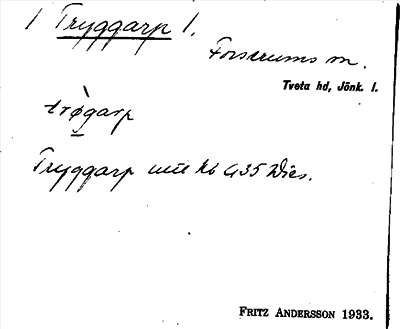 Tryggarp 1.
Forserums sn.
Tveta hd, Jönk. l.
trøgarp
Tryggarp
FRITZ ANDERSSON 1933.